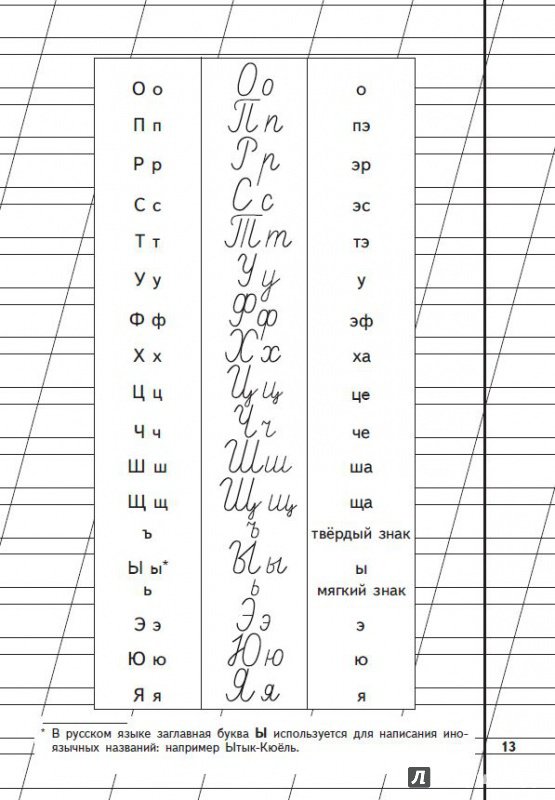 О о Оо о
П п Пп пэ
Р р Рр эр
С с Сс эс
Т т Тт тэ
У у Уу у
Ф ф Фф эф
Х х Хх ха
Ц ц Цц це
Ч ч Чч че
Ш ш Шш ша
Щ щ Щщ ща
ъ ъ твёрдый знак
Ы ы* Ыы ы
ь ь мягкий знак
Э э Ээ э
Ю ю Юю ю
Я я Яя я
* В русском языке заглавная буква Ы используется для написания ино-
язычных названий: например Ытык-Кюёль.
13
Л